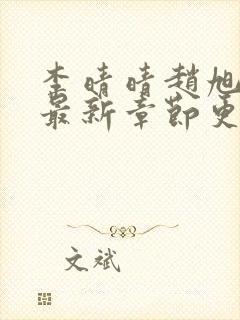 李晴晴趙旭
最新章節更
文斌